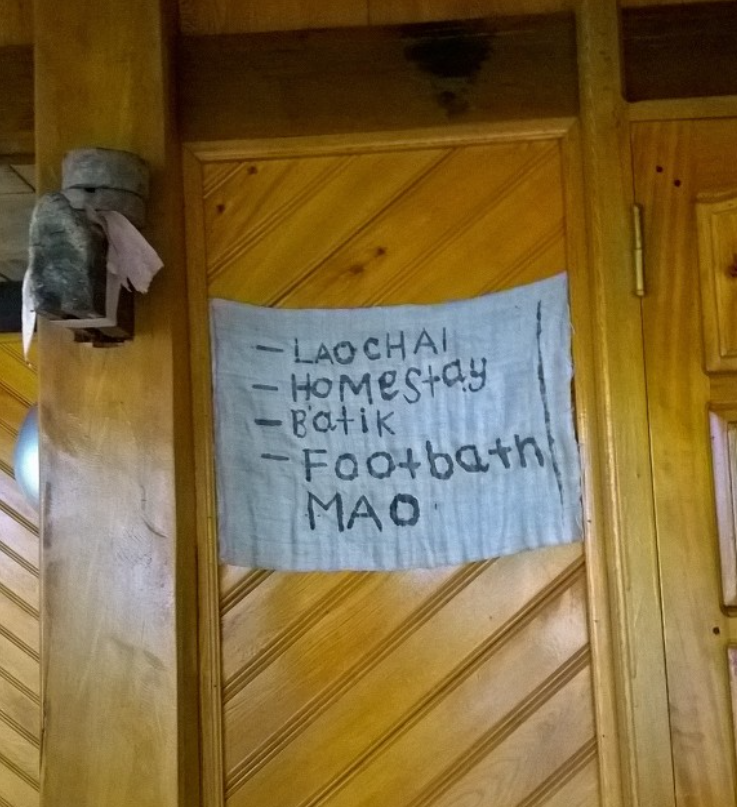 - LAOCHAI
- HOMestay
- Batik
- Footbath
MAO